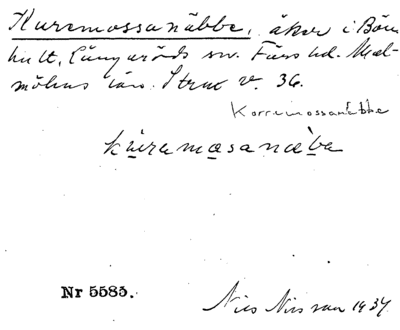 Kuremossanäbbe, åker i Bön-
hult, Långaröds sn. Färs hd. Mal-
möhus län. Strax v. 36.
Korremossanäbbe
kuremosanæba
Nr 5585.
Nils Nilsson 1934.